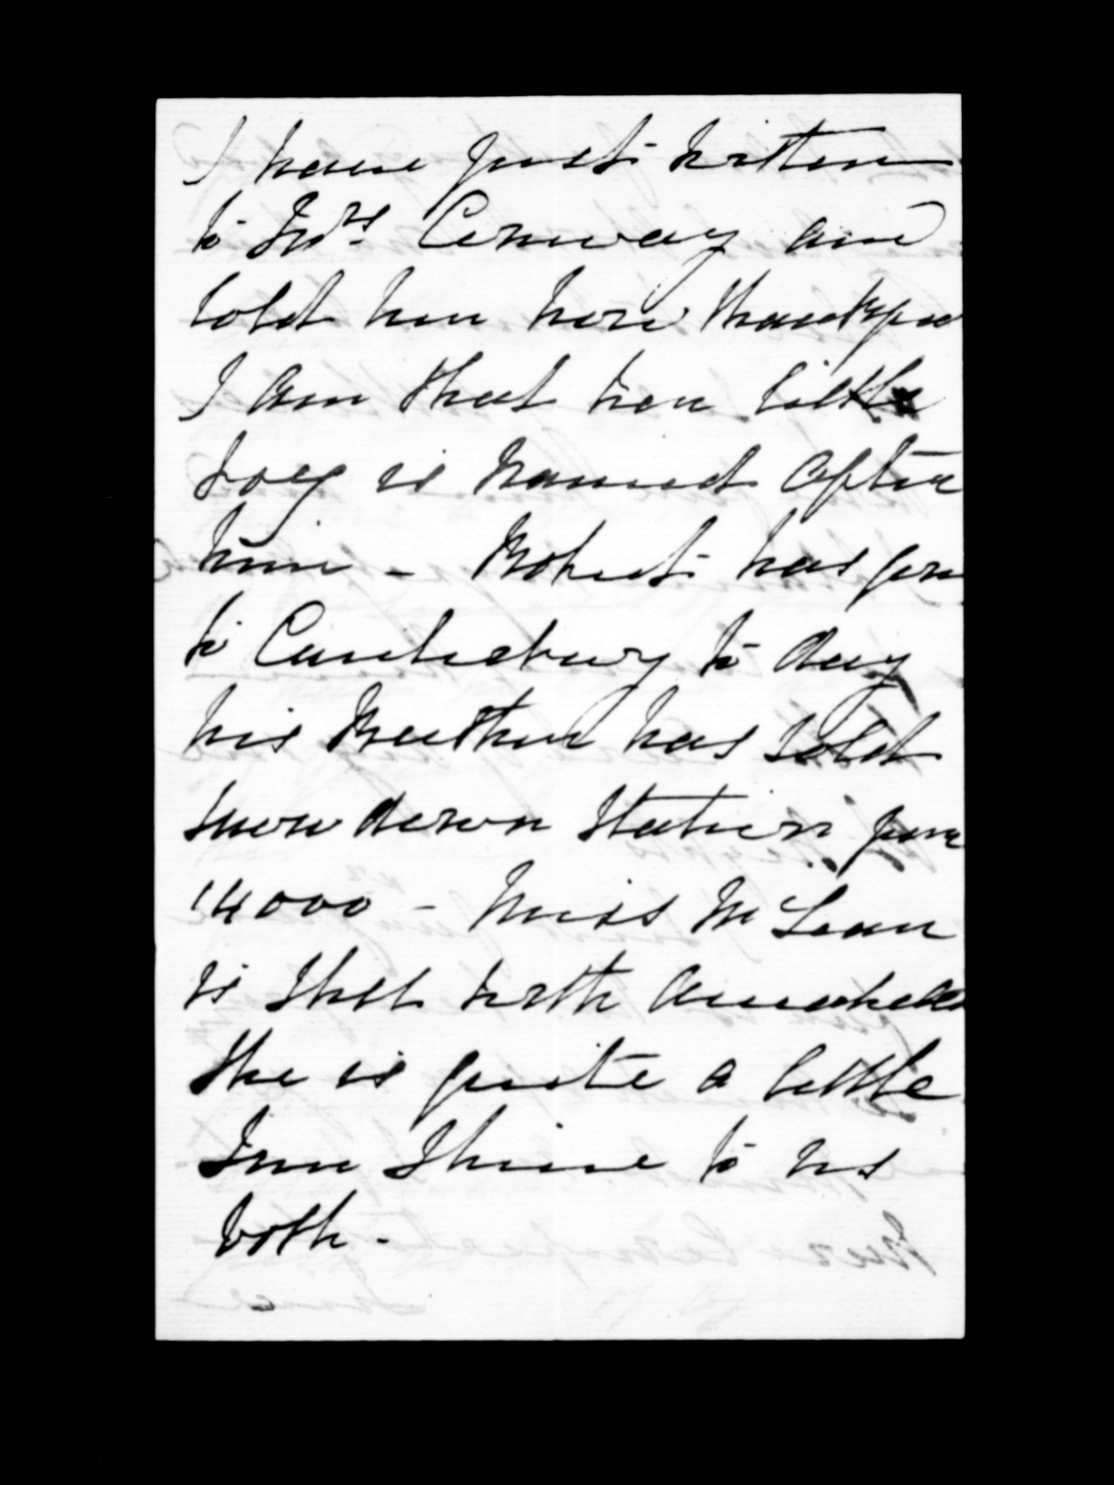 I have just written
to Mrs. Conway and
told her how thankful
I am that her little
boy is named after
him - Robert has gone
to Canterbury to day
his Brother has sold
Snowdown Station for
14000 - Miss McLean
is still with Annabella
She is quite a little
Sun Shine to us
both -